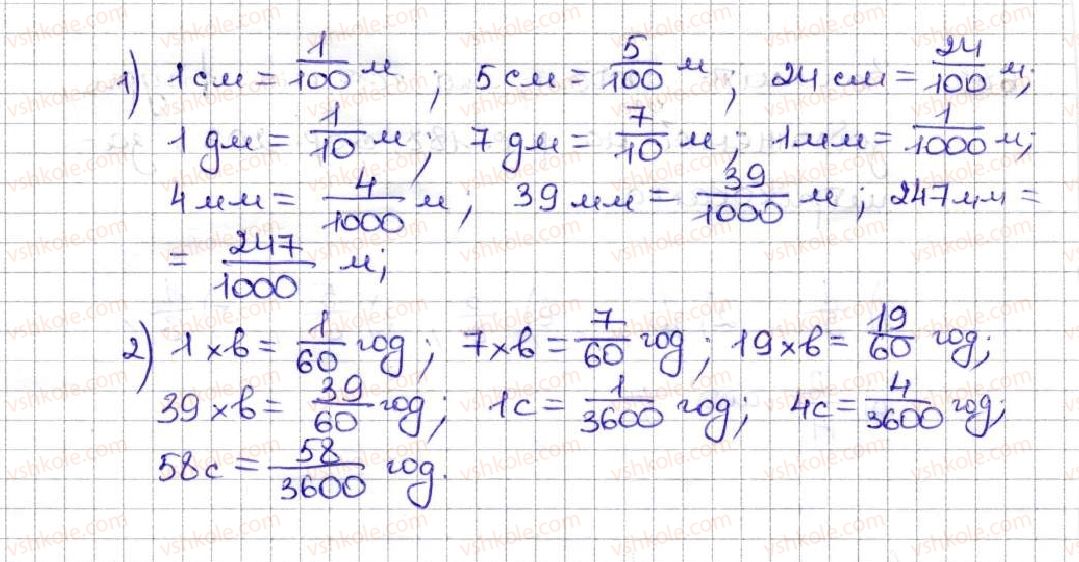 1) 1 см = 1/100 м ; 5 см = 5/100 м ; 24 см = 24/100 м;
1 дм = 1/10 м; 7 дм = 7/10 м; 1 мм = 1/1000 м;
4 мм = 4/1000 м; 39 мм = 39/1000 м ; 247 мм =
= 247/1000 м;
2) 1 хв = 1/60 год; 7 хв = 7/60 год; 19 хв = 19/60 год;
39 хв = 39/60 год; 1с = 1/3600 год; 4с = 4/3600 год;
58с = 58/3600 год.